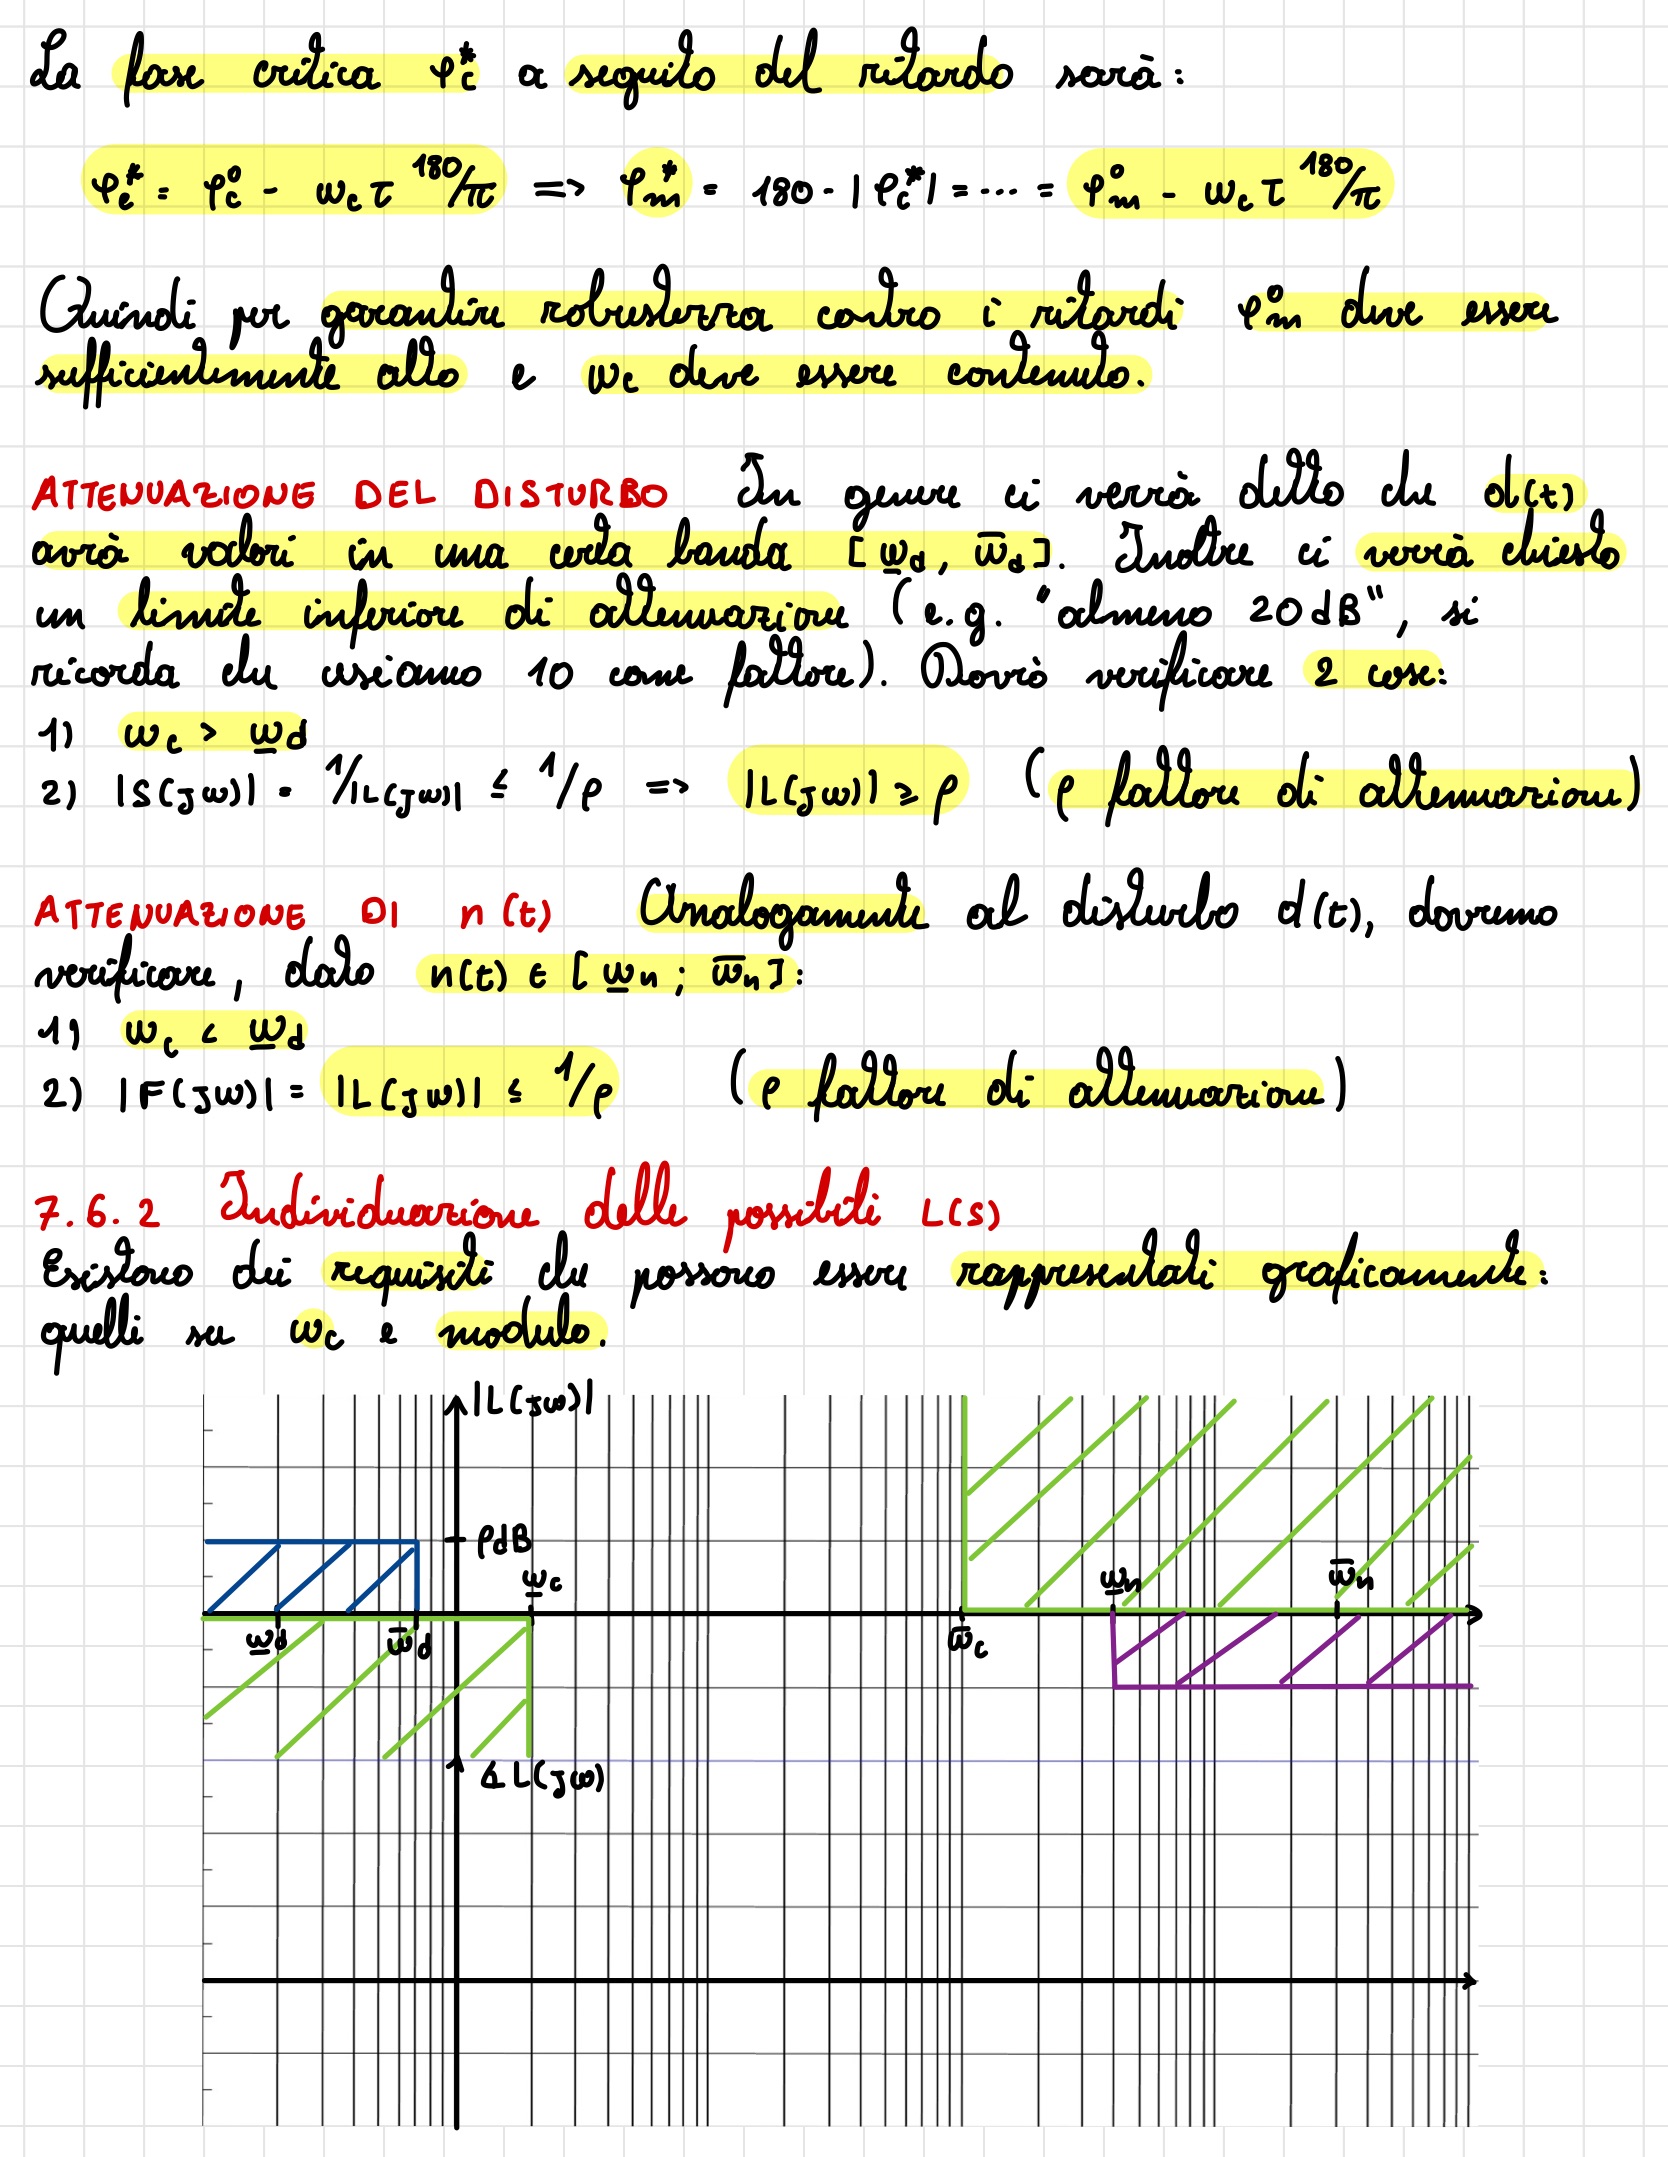 La fase critica φc* a seguito del ritardo sarà:
φc* = φc⁰ - ωc τ 180/π => φm* = 180 - |φc*| = ... = φm⁰ - ωc τ 180/π
Quindi per garantire robustezza contro i ritardi φm⁰ deve essere
sufficientemente alto e ωc deve essere contenuto.
ATTENUAZIONE DEL DISTURBO In genere ci verrà detto che d(t)
avrà valori in una certa banda [ω̲d, ω̅d]. Inoltre ci verrà chiesto
un limite inferiore di attenuazione (e.g. "almeno 20dB", si
ricorda che usiamo 10 come fattore). Dovrò verificare 2 cose:
1) ωc > ω̲d
2) |S(jω)| = 1/|L(jω)| ≤ 1/ρ => |L(jω)| ≥ ρ (ρ fattore di attenuazione)
ATTENUAZIONE DI n(t) Analogamente al disturbo d(t), dovremo
verificare, dato n(t) ∈ [ω̲n ; ω̅n]:
1) ωc < ω̲d
2) |F(jω)| = |L(jω)| ≤ 1/ρ (ρ fattore di attenuazione)
7.6.2 Individuazione delle possibili L(s)
Esistono dei requisiti che possono essere rappresentati graficamente:
quelli su ωc e modulo.
|L(jω)|
ρdB
ω̲c
ω̲n
ω̅n
ω̲d
ω̅d
ω̅c
∡L(jω)